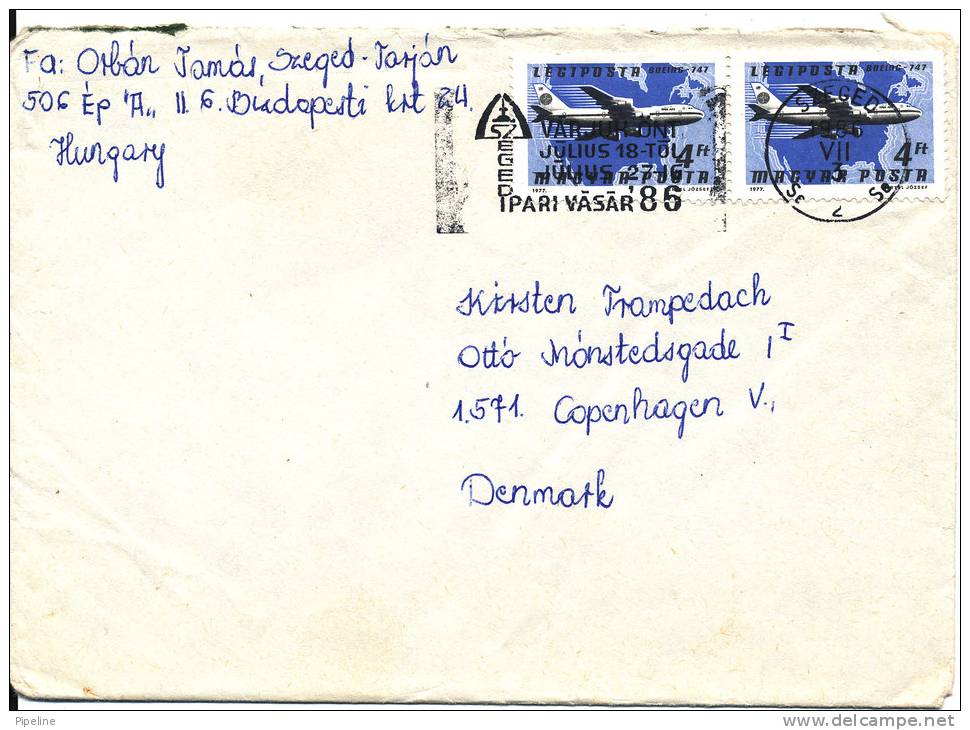 Fa: Orbán Tamás, Szeged-Tarján
506 Ép "A" II 6. Budapesti krt 24.
Hungary
LÉGIPOSTA BOEING-747
4 Ft
MAGYAR POSTA
1977.
LÉGIPOSTA BOEING-747
4 Ft
MAGYAR POSTA
1977. JÓZSEF
SZEGED
VÁRJUK ÖNT
JÚLIUS 18-TÓL
JÚLIUS 27-IG
IPARI VÁSÁR '86
SZEGED
VII
3
2
Kirsten Trampedach
Ottó Mónstedsgade 1 I
1.571. Copenhagen V.,
Denmark
Pipeline
www.delcampe.net